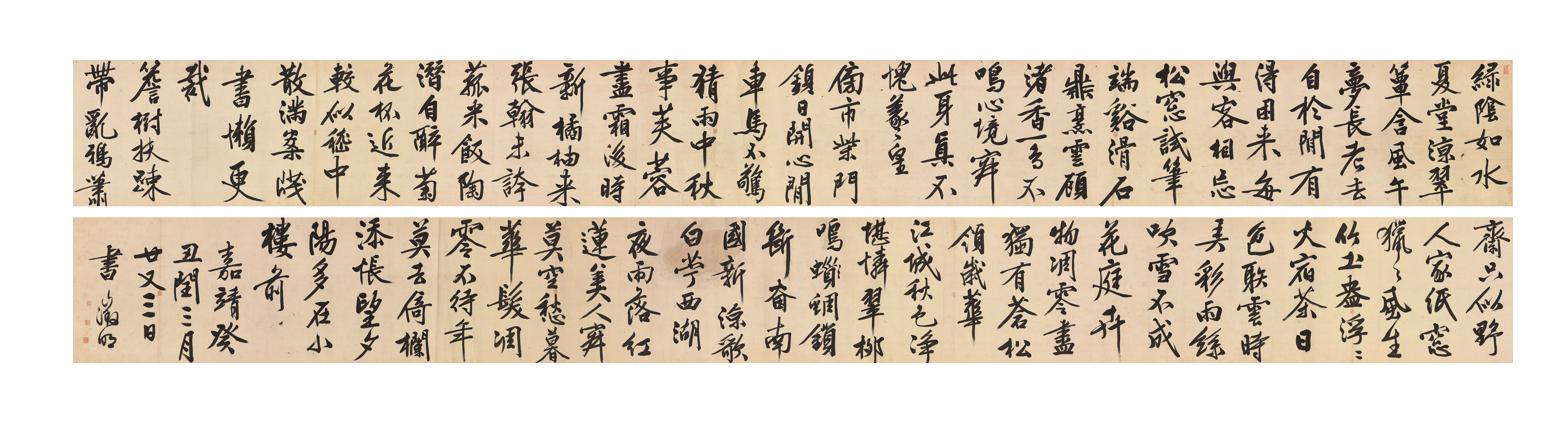 綠陰如水
夏堂涼翠
簟含風午
夢長老去
自於閒有
得困来每
與客相忘
松窓試筆
端谿滑石
鼎烹雲顧
渚香一鳥不
鳴心境寂
此身真不
愧羲皇
傍市柴門
鎮日開心閒
車馬不驚
猜雨中秋
事芙蓉
盡霜後時
新橘柚来
張翰未誇
菰米飯陶
潛自醉菊
花杯近来
較似嵇中
散滿案牋
書懶更
裁
簷樹扶踈
帶亂鴉蕭
齋只似野
人家紙窓
獵〻風生
竹土盎浮〻
火宿茶日
色聫雲時
弄彩雨絲
吹雪不成
花庭卉
物凋零盡
獨有蒼松
領歲華
江城秋色淨
堪憐翠柳
鳴蜩鎖
斷南
國新涼歌
白苧西湖
夜雨落紅
蓮美人寂
莫空愁暮
華髮凋
零不待年
莫去倚欄
添悵望夕
陽多在小
樓前
嘉靖癸
丑閏三月
廿又三日
書 徵明